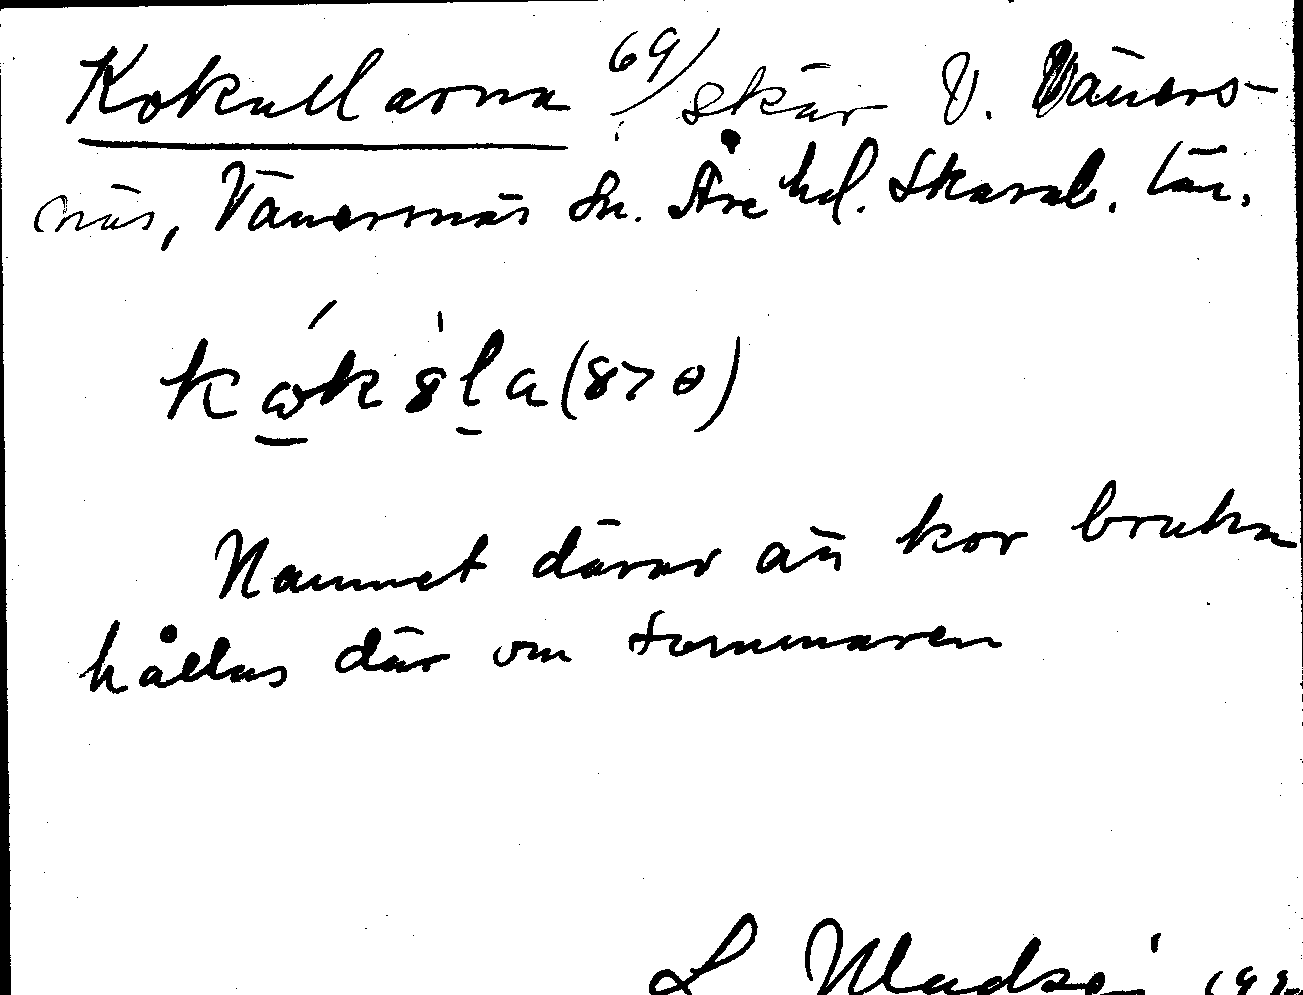 Kokullarna 69/ skär V. Väners-
näs, Vänersnäs Sn. Åse hd. Skarab. län.
(870)
Namnet därav att kor bruka
hållas där om sommaren
L